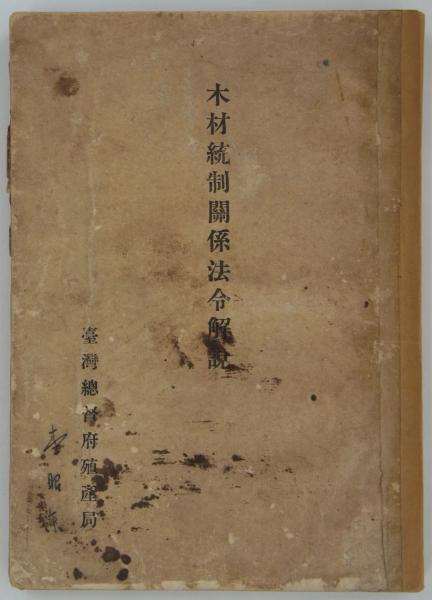 木材統制關係法令解說
臺灣總督府殖產局
昭